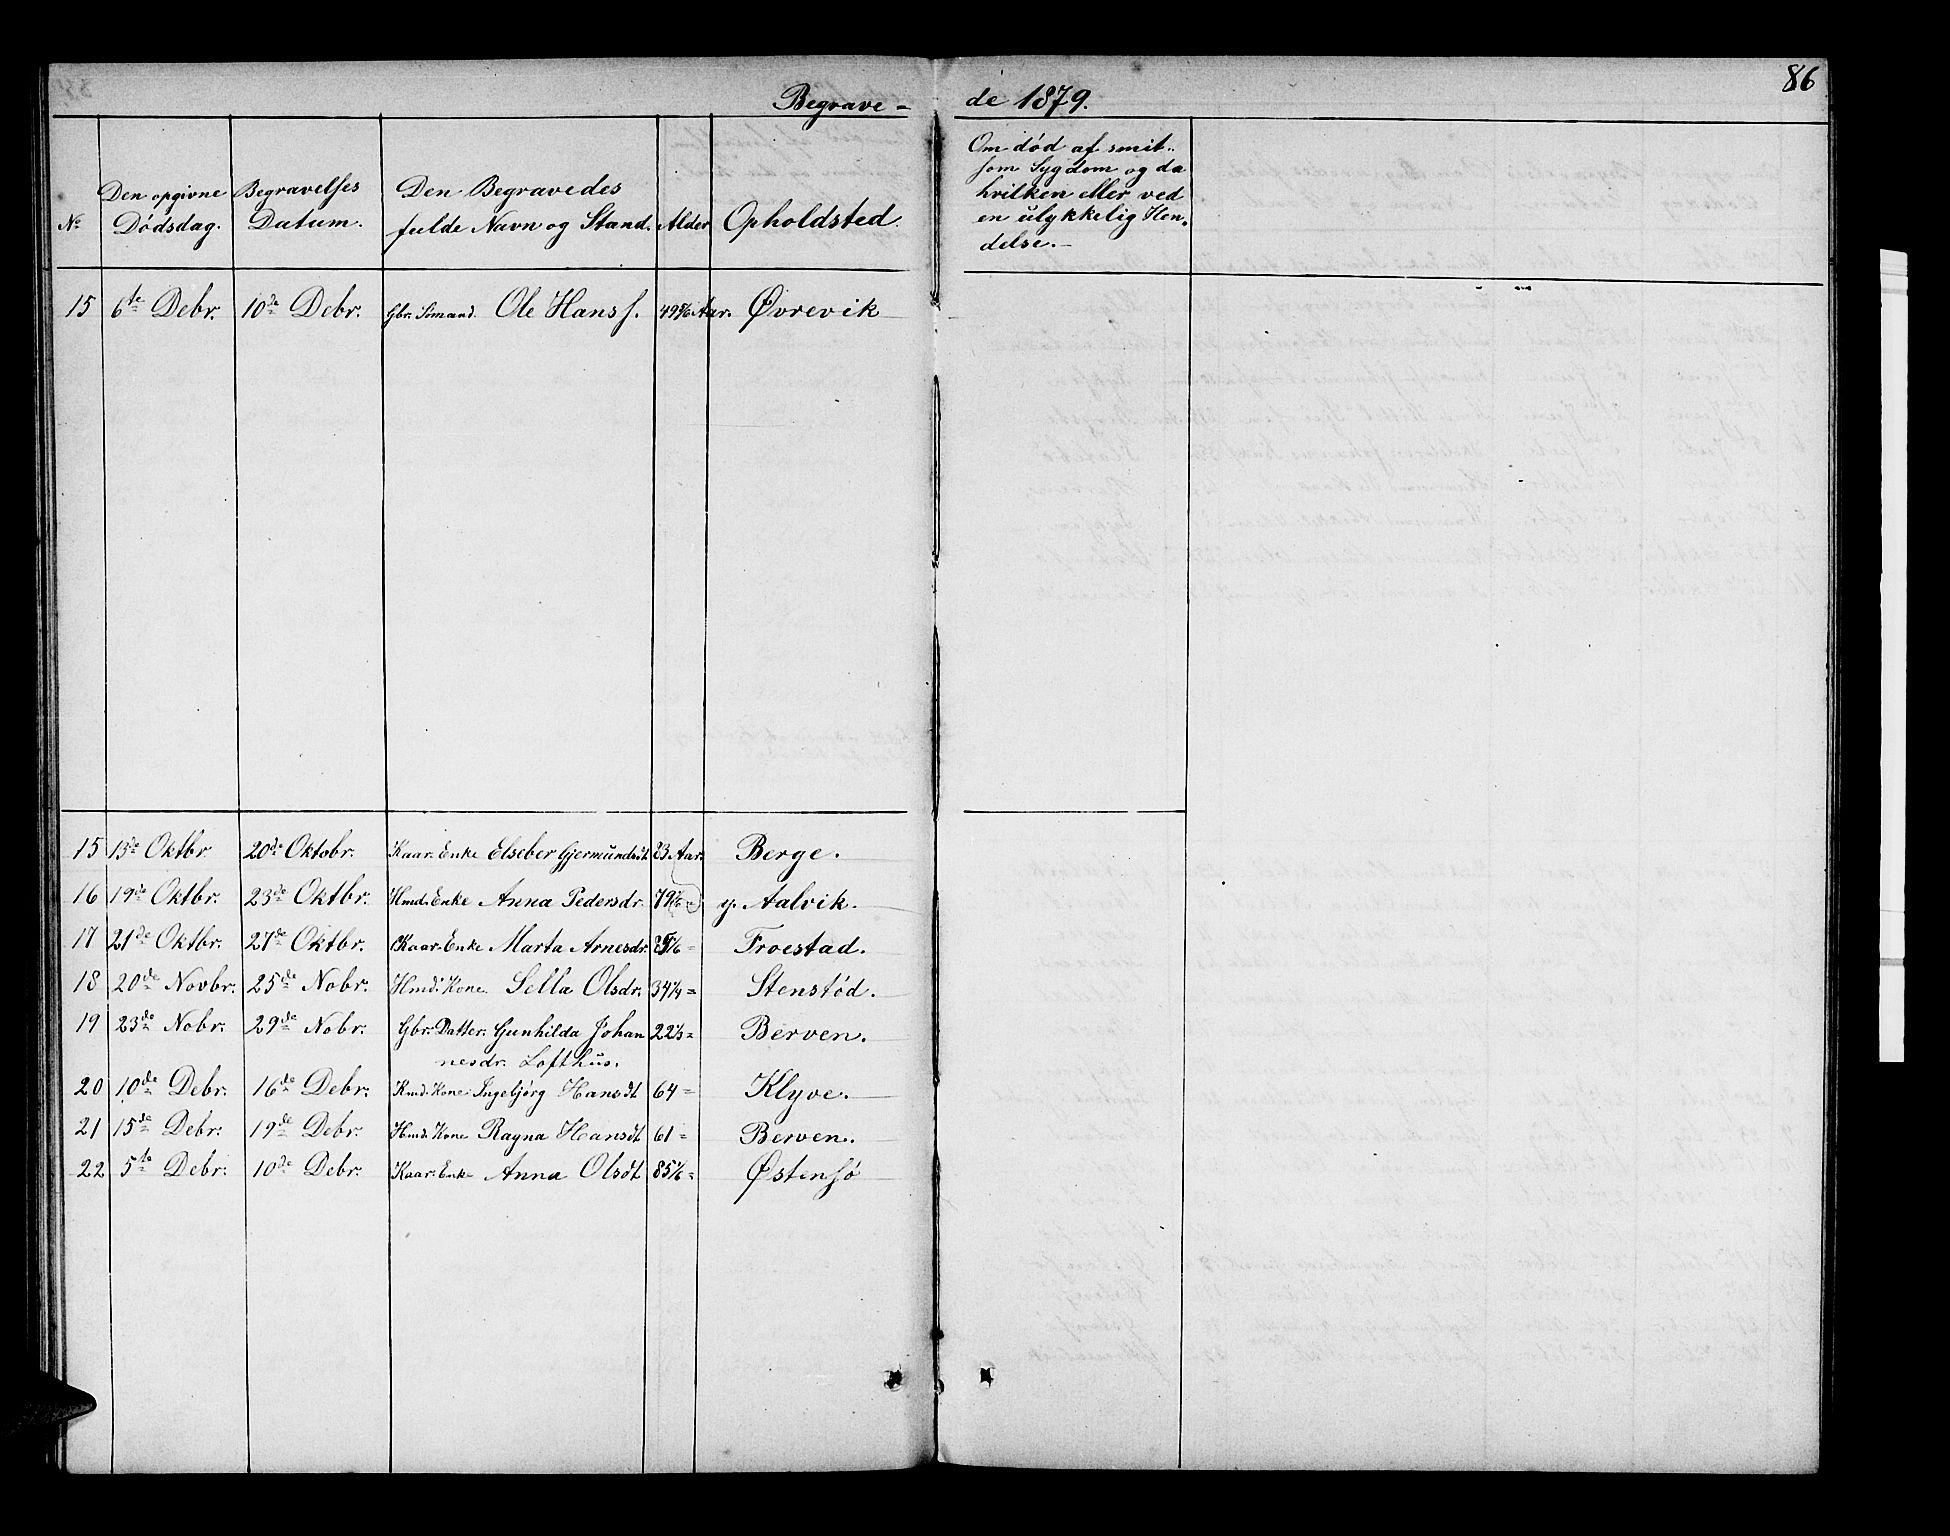 86
Begrave - de 1879.
No Den opgivne Dödsdag. Begravelses Datum. Den Begravedes fulde Navn og Stand. Alder Opholdsted. Om död af smit- som Sygdom og da hvilken eller ved en ulykkelig Hen- delse.
15 6te Debr. 10de Debr. Gbr. Sömand. Ole Hanss. Aar. Øvrevik
15 15de Oktbr. 20de Oktobr. Kaar. Enke Elseber Gjermundsdt. 83 Aar. Berge.
16 19de Oktbr. 23de Oktbr. Hmd. Enke Anna Pedersdr. y. Aalvik.
17 21de Oktbr. 27de Oktbr. Kaar. Enke Marta Arnesdr. Froestad.
18 20de Novbr. 25de Nobr. Hmd. Kone. Sella Olsdr. 34 1/4 = Stenstöd.
19 23de Nobr. 29de Nobr. Gbr. Datter. Gunhilda Johan 22 1/3 = Berven.
nesdr. Lofthus.
20 10de Debr. 16de Debr. Kmd. Kone. Ingebjörg Hansdt 64 = Klyve.
21 15de Debr. 19de Debr. Hmd. Kone Ragna Hansdt 61 = Berven.
22 5te Debr. 10de Debr. Kaar. Enke Anna Olsdt 85 1/6 = Østensö